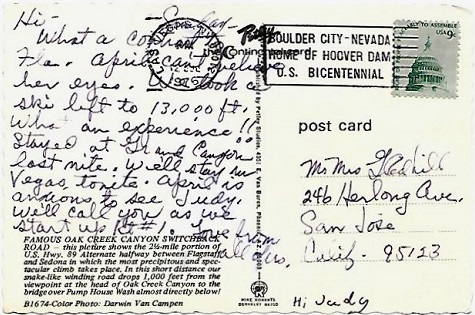 Hi - Sunday
What a contrast to
Fla. April can't believe
her eyes. Took a
ski lift to 13,000 ft.
What an experience!!
Stayed at "Grand Canyon"
last nite. We'll stay in
Vegas tonite. April is
anxious to see Judy.
We'll call you as we
start up Rt #1. Love from
all of us,
FAMOUS OAK CREEK CANYON SWITCHBACK
ROAD — this picture shows the 2½-mile portion of
U.S. Hwy. 89 Alternate halfway between Flagstaff
and Sedona in which the most precipitous and spec-
tacular climb takes place. In this short distance our
snake-like winding road drops 1,000 feet from the
viewpoint at the head of Oak Creek Canyon to the
bridge over Pump House Wash almost directly below!
B1674-Color Photo: Darwin Van Campen
the Continental card
1976
BOULDER CITY-NEVADA
HOME OF HOOVER DAM
U.S. BICENTENNIAL
TO ASSEMBLE
USA 9c
post card
Mr Mrs Gledhill
246 Herlong Ave.
San Jose
Calif. 95123
Hi Judy
MIKE ROBERTS
BERKELEY 94710